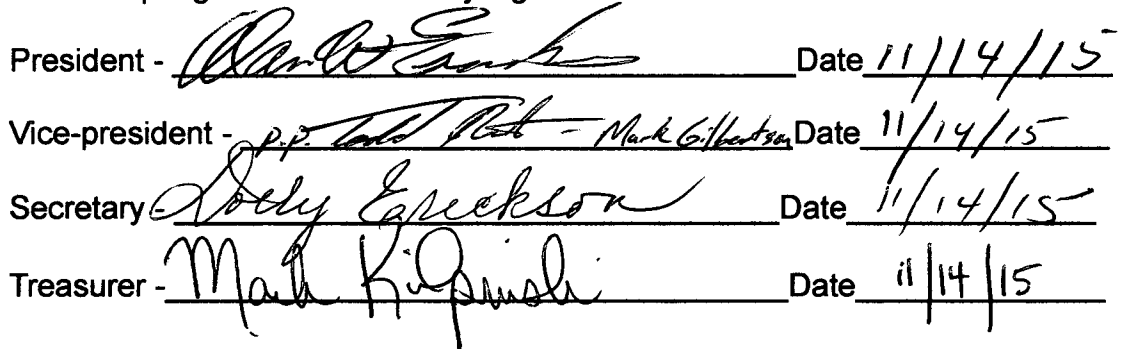 President - Date 11/14/15
Vice-president - p.p. Todd - Mark Gilbertson Date 11/14/15
Secretary - Dolly Erickson Date 11/14/15
Treasurer - Mark Date 11/14/15